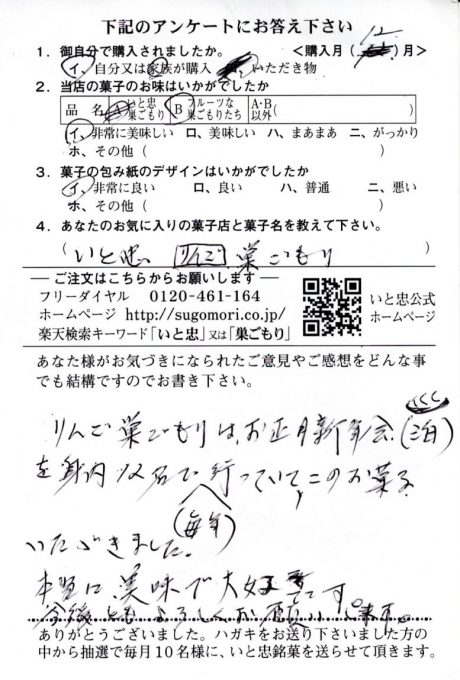 下記のアンケートにお答え下さい
1．御自分で購入されましたか。　＜購入月（12）月＞
イ、自分又は家族が購入　いただき物
2．当店の菓子のお味はいかがでしたか
品 名　A いと忠巣ごもり　B フルーツな巣ごもりたち　A・B以外（　　　）
イ、非常に美味しい　ロ、美味しい　ハ、まあまあ　ニ、がっかり
ホ、その他（　　　）
3．菓子の包み紙のデザインはいかがでしたか
イ、非常に良い　ロ、良い　ハ、普通　ニ、悪い
ホ、その他（　　　）
4．あなたのお気に入りの菓子店と菓子名を教えて下さい。
（いと忠　りんご　巣ごもり　）
― ご注文はこちらからお願いします ―
フリーダイヤル　0120-461-164
ホームページ　http://sugomori.co.jp/
楽天検索キーワード「いと忠」又は「巣ごもり」
いと忠公式
ホームページ
あなた様がお気づきになられたご意見やご感想をどんな事
でも結構ですのでお書き下さい。
りんご巣ごもりは、お正月新年会
を身内 名で行っていて、このお菓子
（毎年）
いただきました。
本当に美味で大好きです。
今後ともよろしくお願いします。
ありがとうございました。ハガキをお送り下さいました方の
中から抽選で毎月10名様に、いと忠銘菓を送らせて頂きます。